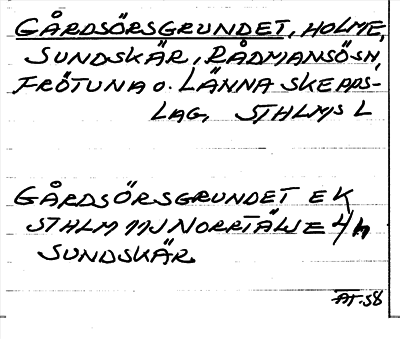 GÅRDSÖRSGRUNDET, HOLME,
SUNDSKÄR, RÅDMANSÖ SN,
FRÖTUNA O. LÄNNA SKEPPS-
LAG, STHLMS L
GÅRDSÖRSGRUNDET EK
STHLM 11J NORRTÄLJE
SUNDSKÄR
AT. 58